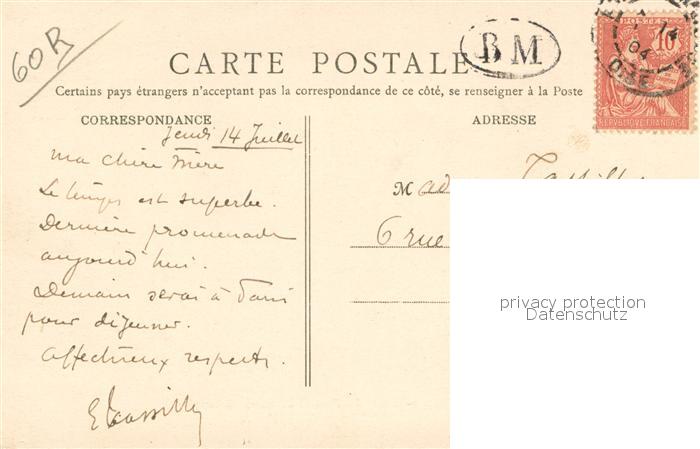 60R
CARTE POSTALE
BM
POSTES
10
14
04
OISE
RÉPUBLIQUE FRANÇAISE
Certains pays étrangers n'acceptant pas la correspondance de ce côté, se renseigner à la Poste
CORRESPONDANCE
ADRESSE
Jeudi 14 Juillet
Ma chère Mère
Le temps est superbe.
Dernière promenade
aujourd'hui.
Demain serai à Paris
pour déjeuner.
Affectueux respects.
Mad
6 rue
privacy protection
Datenschutz